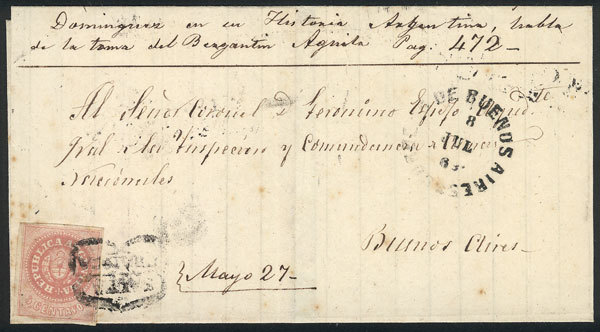 Dominguez en su Historia Argentina, habla
de la toma del Bergantin Aguila Pag. 472—
Al Señor Coronel D. Geronimo Espejo
Gral de la Inspeccion y Comandancia
Nacionales
DE BUENOS AIRES
8
JUL
63
Buenos Aires
Mayo 27—
REPUBLICA
5 CENTAVOS